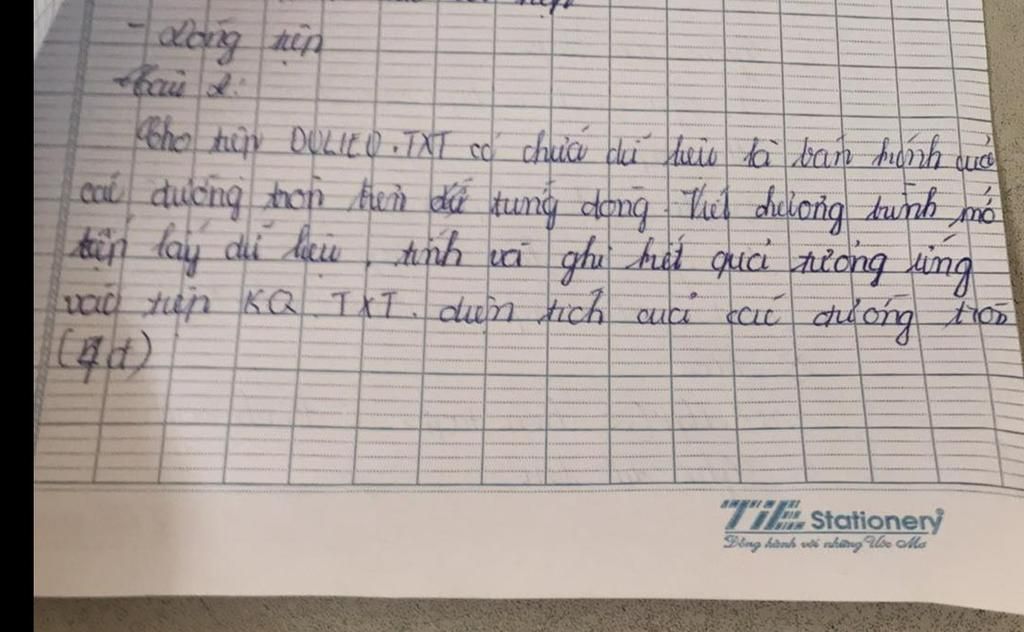 - đóng tệp
Câu 2:
Cho tệp DULIEU.TXT có chứa dữ liệu là bán kính của
các đường tròn trên từng dòng. Viết chương trình mở
tệp lấy dữ liệu, tính và ghi kết quả tương ứng
vào tệp KQ.TXT. diện tích của các đường tròn
(4đ)
TiE Stationery
Đồng hành với những Ước Mơ